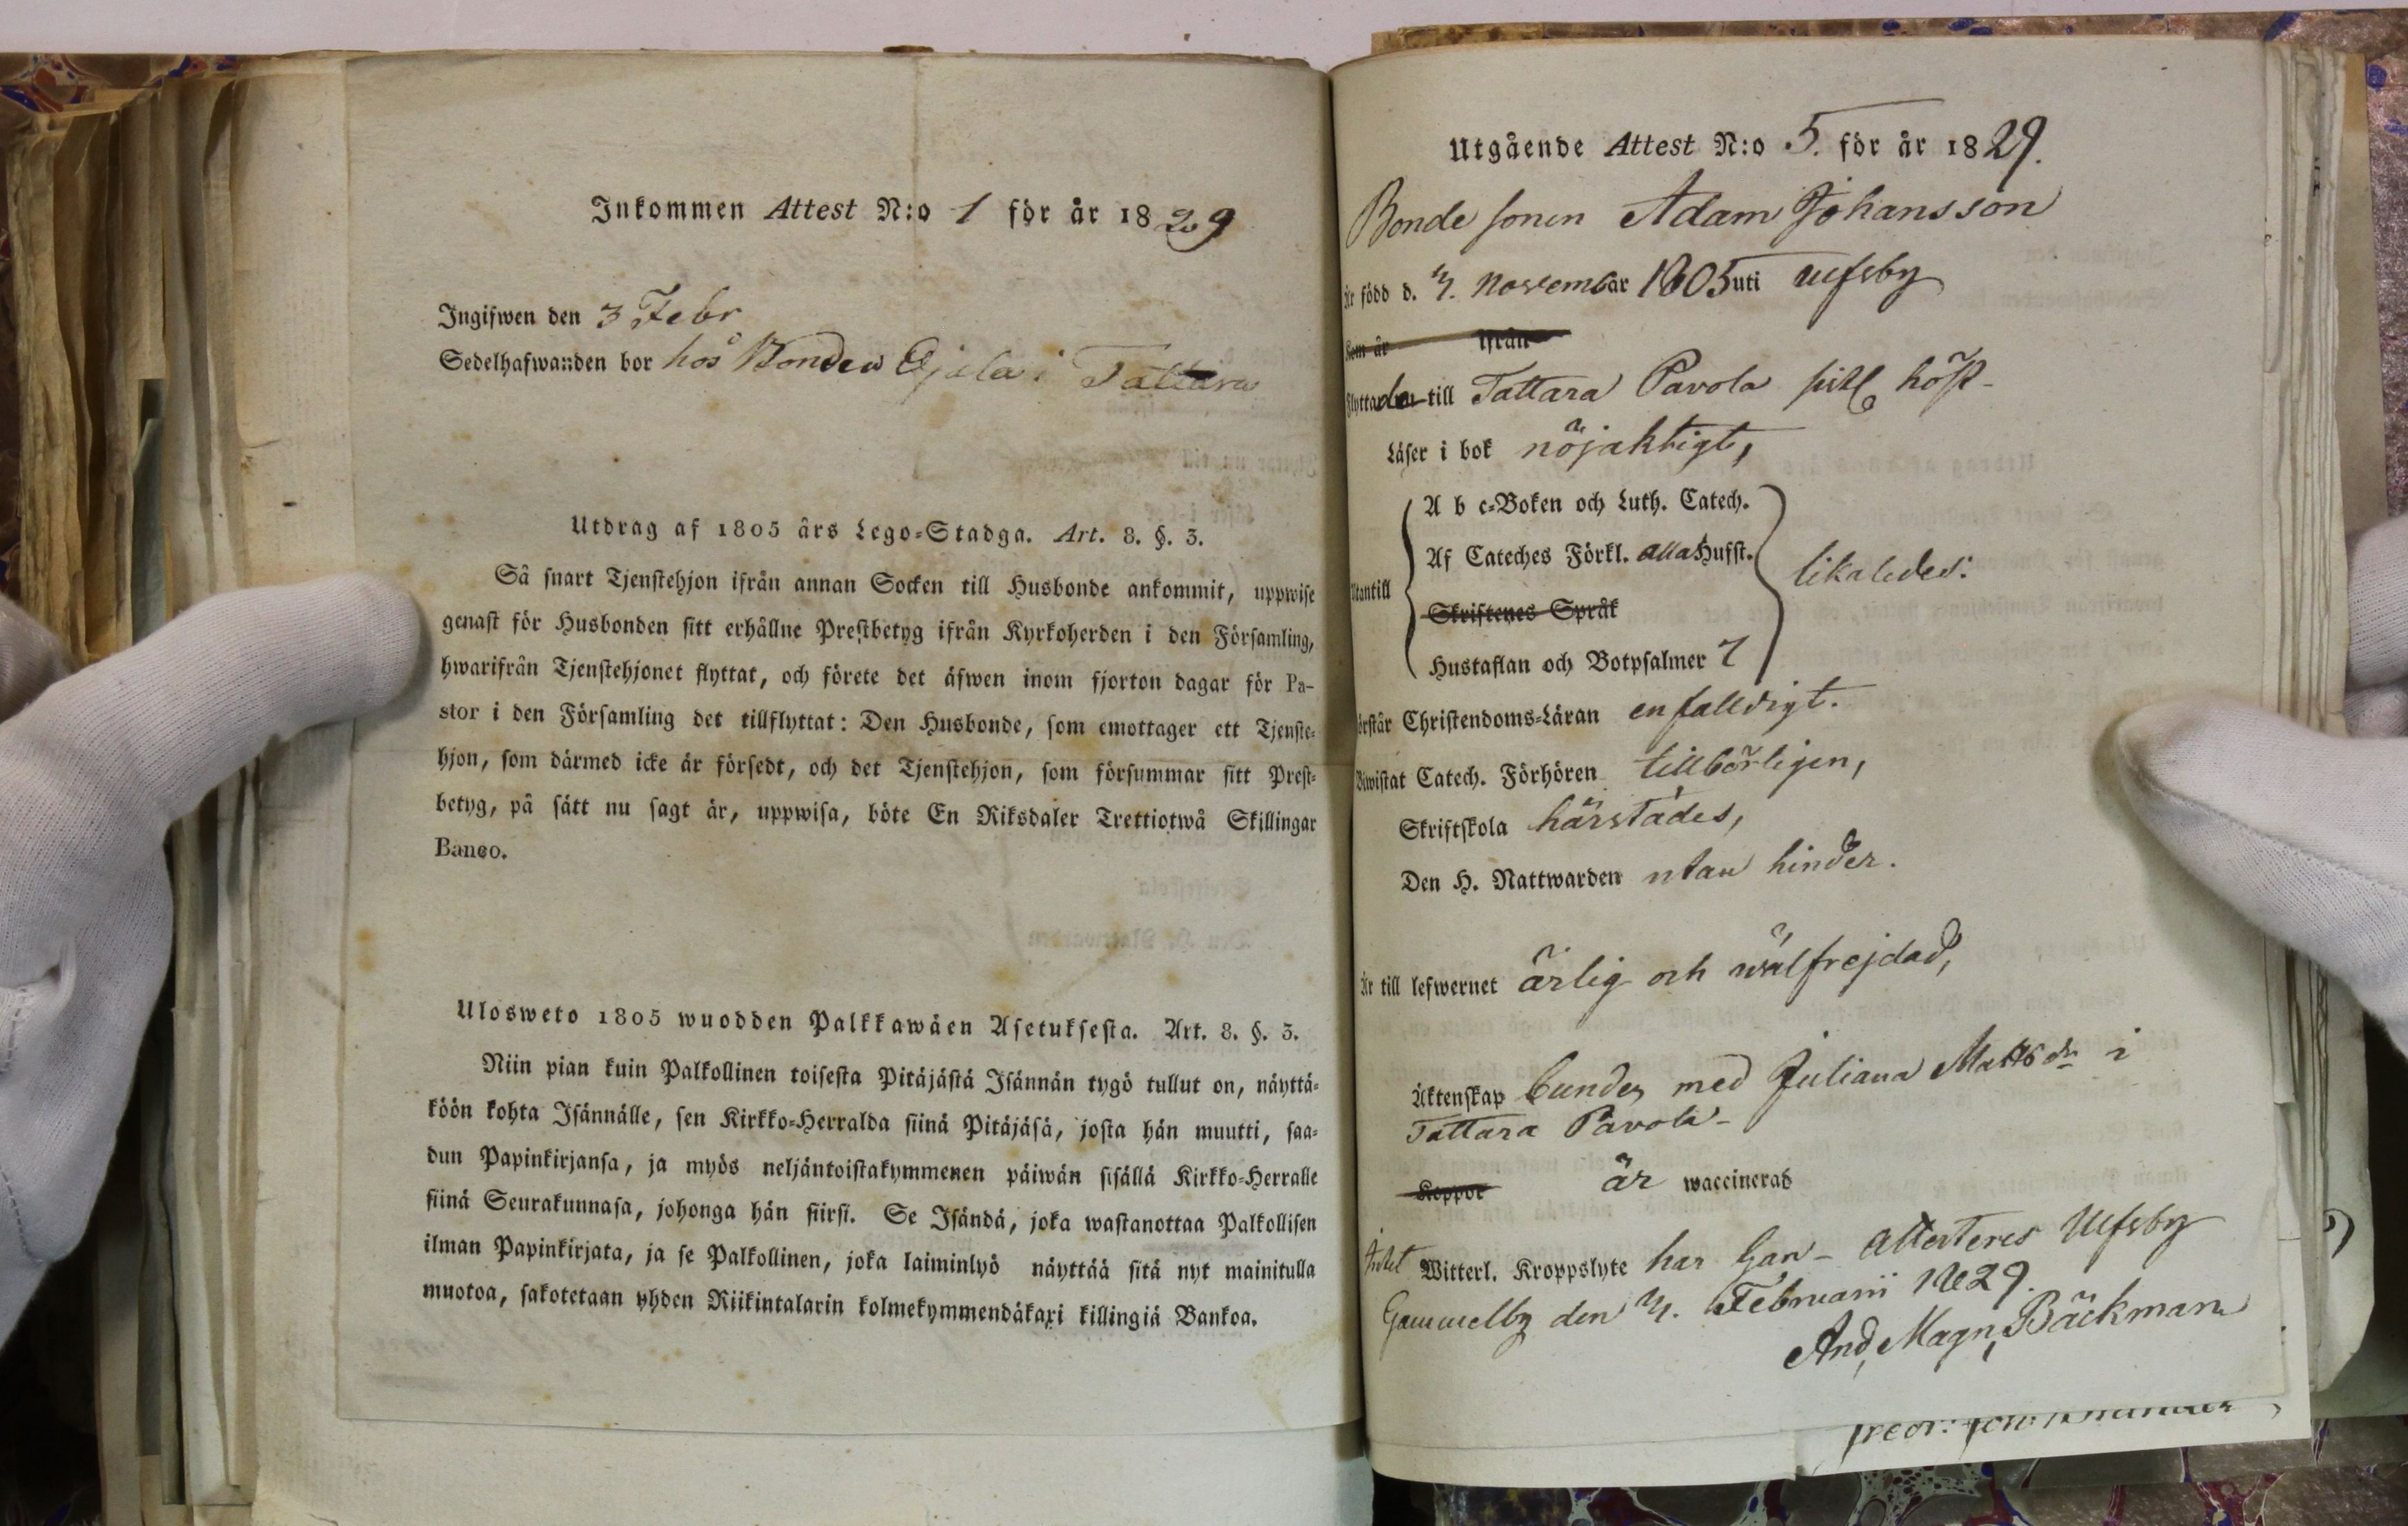 Inkommen Attest N:o 1 för år 1829
Ingifwen den 3 Febr
Sedelhafwanden bor hos Bonden Ejala i Tattara
Utdrag af 1805 års Lego-Stadga. Art. 8. §. 3.
Så snart Tjenstehjon ifrån annan Socken till Husbonde ankommit, uppwise
genast för Husbonden sitt erhållne Prestbetyg ifrån Kyrkoherden i den Församling,
hwarifrån Tjenstehjonet flyttat, och förete det äfwen inom fjorton dagar för Pa-
stor i den Församling det tillflyttat: Den Husbonde, som emottager ett Tjenste-
hjon, som därmed icke är försedt, och det Tjenstehjon, som försummar sitt Prest-
betyg, på sätt nu sagt är, uppwisa, böte En Riksdaler Trettiotwå Skillingar
Banco.
Ulosweto 1805 wuodden Palkkawäen Asetuksesta. Art. 8. §. 3.
Niin pian kuin Palkollinen toisesta Pitäjästä Isännän tygö tullut on, näyttä-
köön kohta Isännälle, sen Kirkko-Herralda siinä Pitäjäsä, josta hän muutti, saa-
dun Papinkirjansa, ja myös neljäntoistakymmenen päiwän sisällä Kirkko-Herralle
siinä Seurakunnasa, johonga hän siirsi. Se Isändä, joka wastanottaa Palkollisen
ilman Papinkirjata, ja se Palkollinen, joka laiminlyö näyttää sitä nyt mainitulla
muotoa, sakotetaan yhden Riikintalarin kolmekymmendäkaxi killingiä Bankoa.
Utgående Attest N:o 5. för år 1829.
Bonde sonen Adam Johansson
Är född d. 4. November 1805 uti Ulfsby
Kom år ifrån
Flyttade till Tattara Pavola sistl. höst-
Läser i bok nöjaktigt,
A b c-Boken och Luth. Catech.
Af Cateches Förkl. alla Hufst.
Utantill likaledes.
Skriftenes Språk
Hustaflan och Botpsalmer 7
Förstår Christendoms-Läran enfalldigt.
Biwistat Catech. Förhören tillbörligen,
Skriftskola härstädes,
Den H. Nattwarden utan hinder.
Är till lefwernet ärlig och wälfrejdad,
Äktenskap bunden med Juliana Mattsdr i
Tattara Pavola-
Koppor är waccinerad
Intet Witterl. Kroppslyte har han- Attesteres Ulfsby
Gammelby den 4. Februarii 1829.
And. Magn. Bäckman